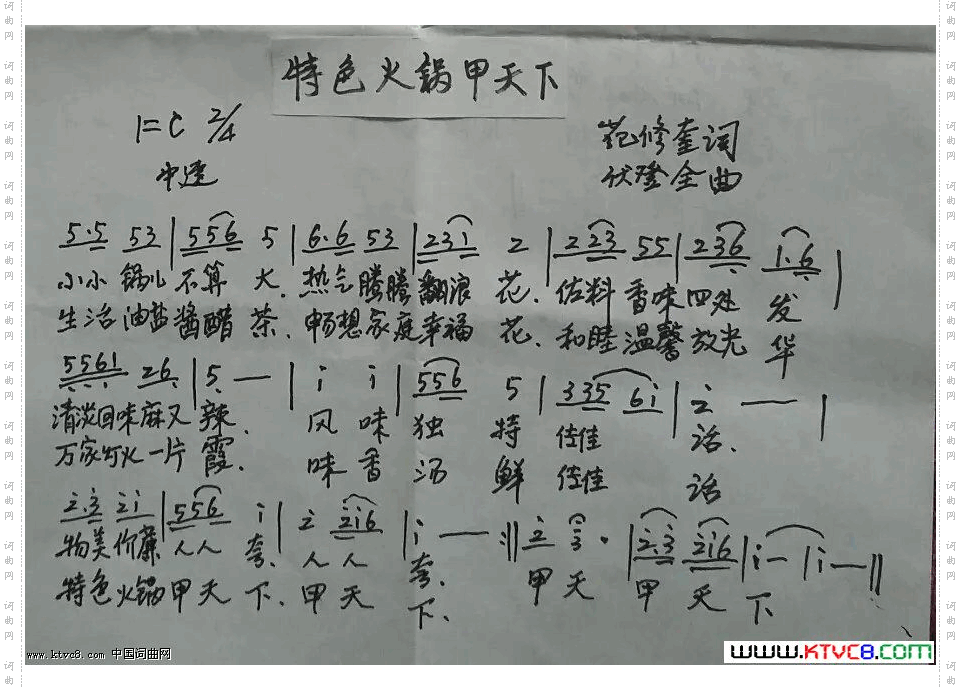 特色火锅甲天下
1=C 2/4
范修奎词
中速
伏登全曲
5·5 53 | 556 5 | 6·6 53 | 231 2 | 223 55 | 236 1·6 |
小小 锅儿 不算 大、热气腾腾 翻浪 花、佐料 香味 四处 发
生活 油盐 酱醋 茶、畅想家庭 幸福 花、和睦 温馨 放光 华
5561 26 | 5 — | i i | 556 5 | 335 6i | 2 — |
清淡回味麻又 辣、 风 味 独 特 佳佳 话、
万家灯火一片 霞、 味 香 汤 鲜 佳佳 话
2·3 2i | 556 i | 2 2i6 | i — :‖ 2 3 · | 2·3 2i6 | i — | i — ‖
物美价廉 人人 夸、人 人 夸、 甲 天 甲 天 下
特色火锅 甲天 下、甲 天 下、
www.ktvc8.com 中国词曲网
www.KTVC8.com
词曲网